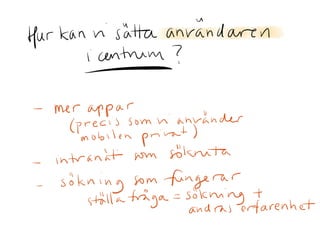 Hur kan vi sätta användaren
i centrum?
- mer appar
(precis som vi använder
mobilen privat)
- intranät som sökruta
- sökning som fungerar
ställa fråga = sökning +
andras erfarenhet